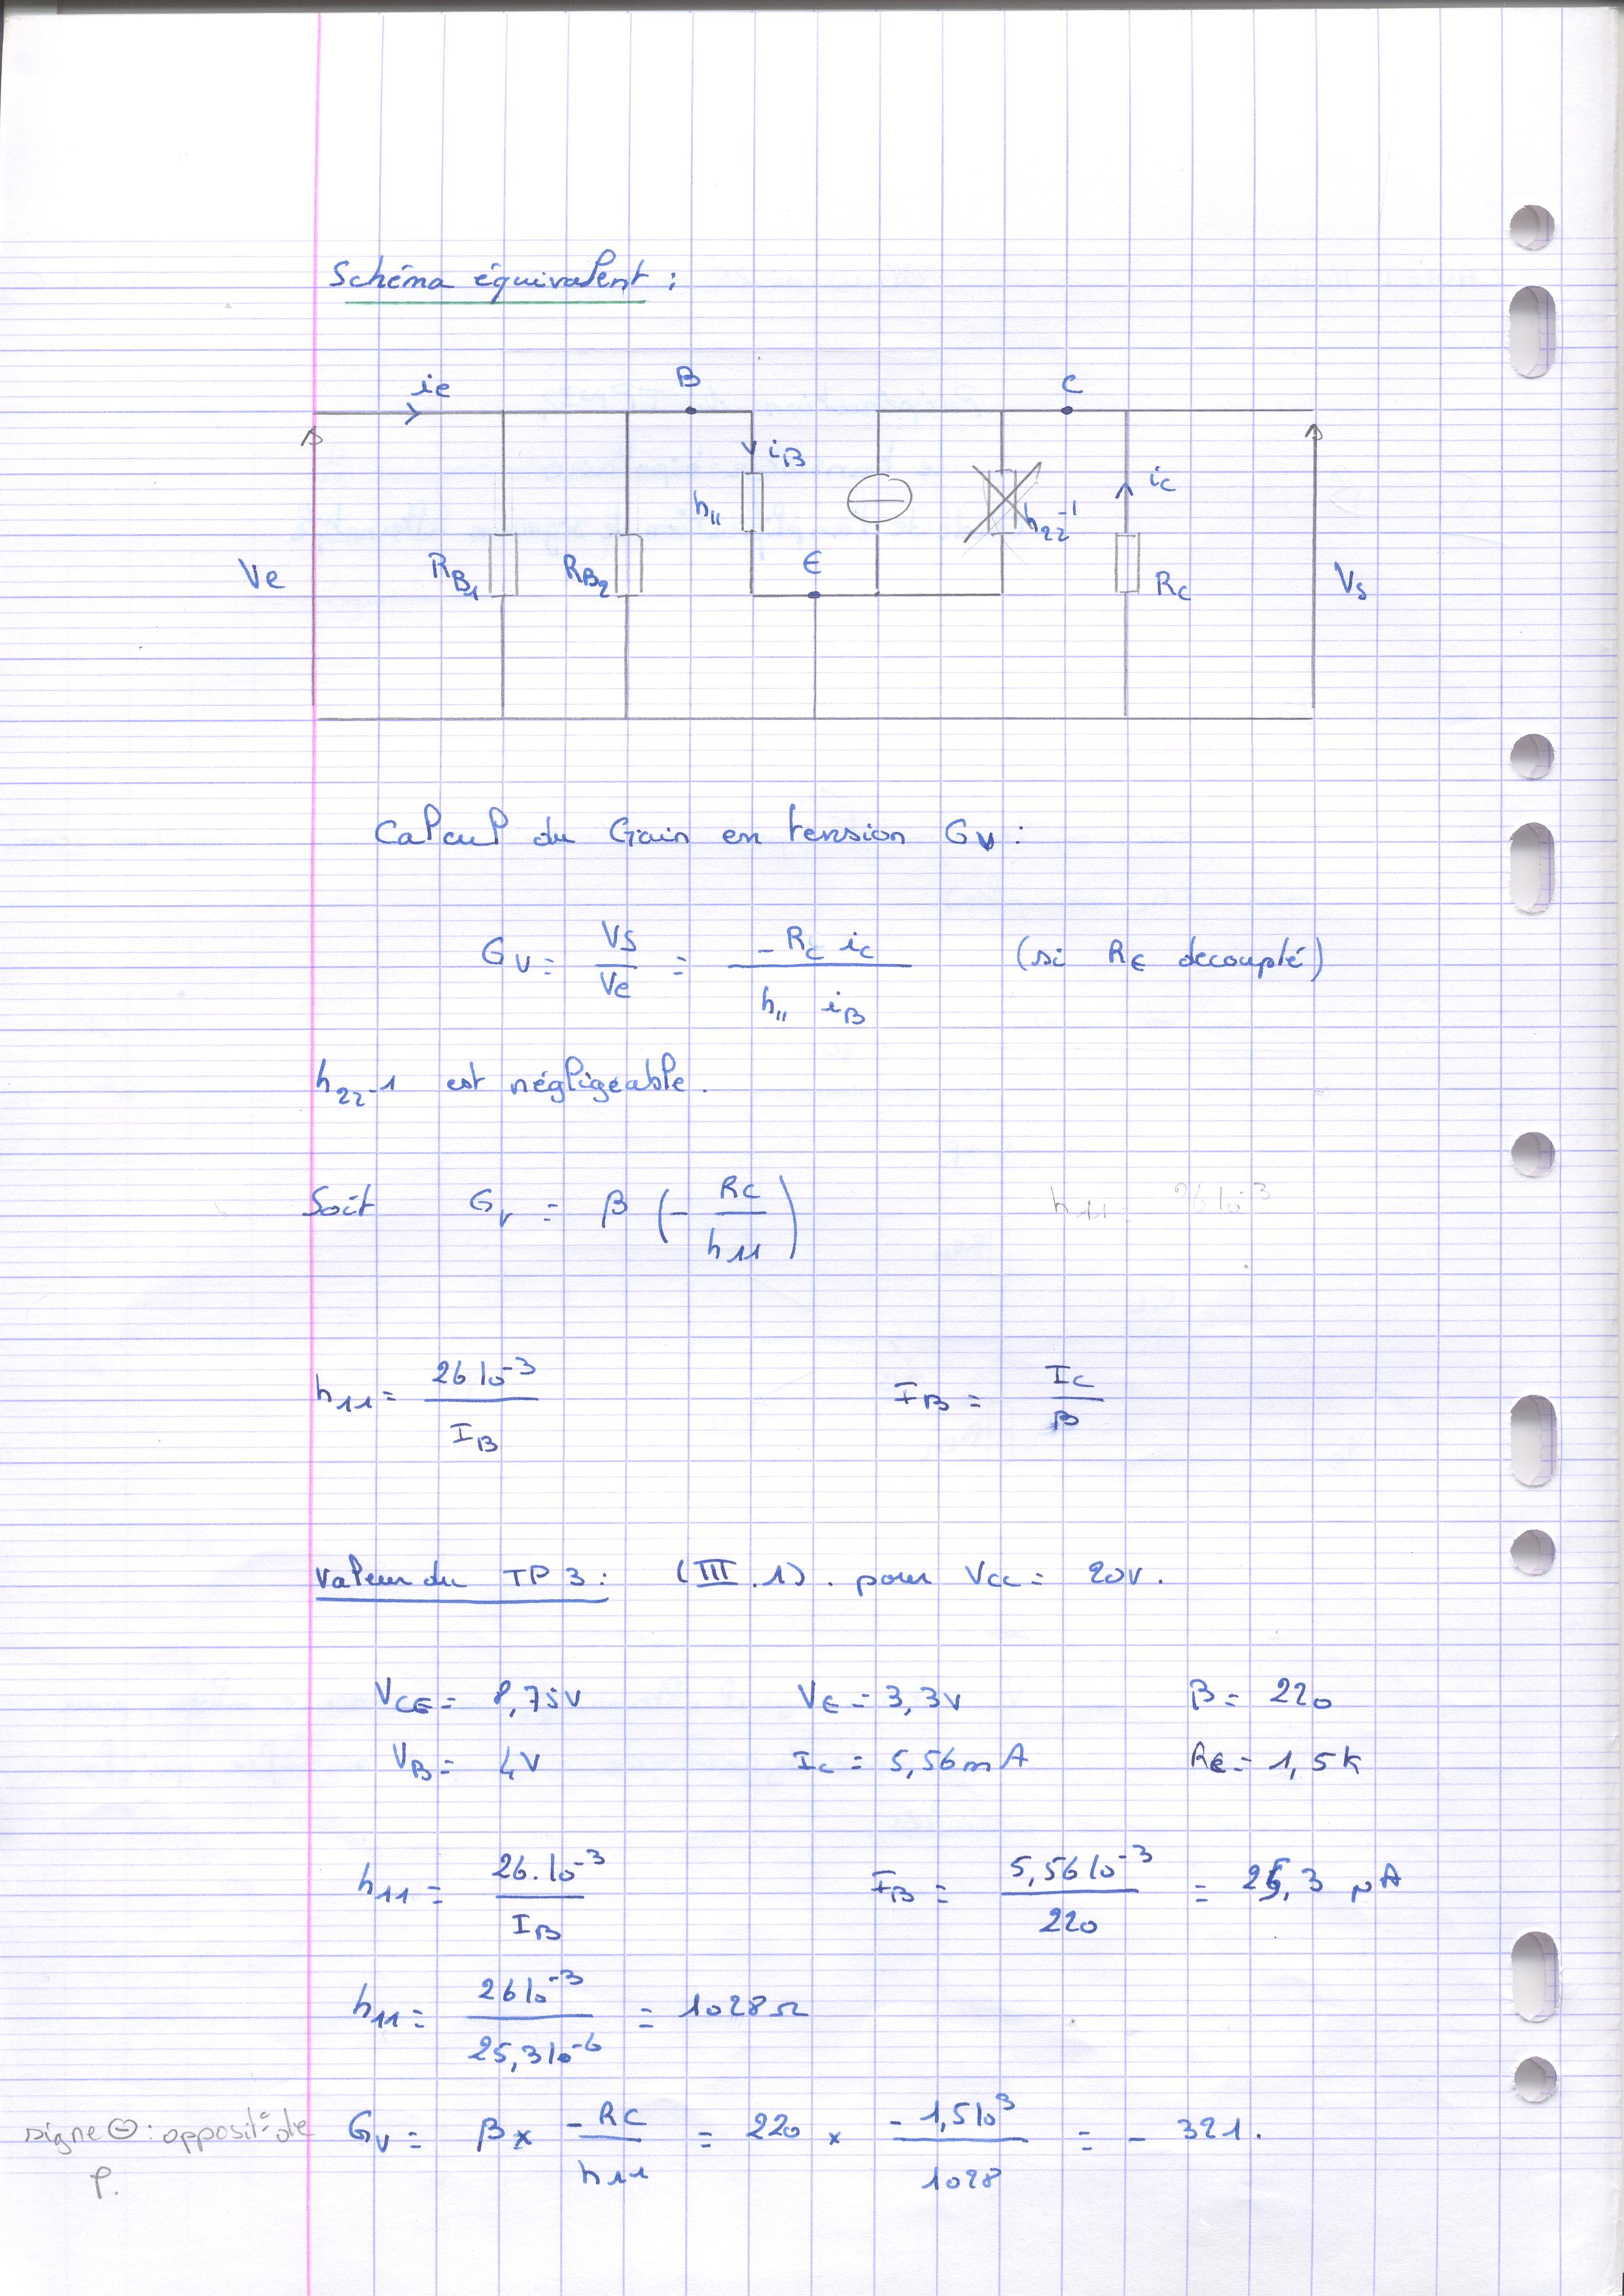 Schéma équivalent :
ie B C
iB
h11 h22⁻¹ ic
E
Ve RB1 RB2 Rc Vs
Calcul du Gain en tension Gv :
Gv = Vs / Ve = - Rc ic / h11 iB (si RE decouplé)
h22-1 est négligeable.
Soit Gv = β (- Rc / h11) h11 = 26 10⁻³
h11 = 26 10⁻³ / IB IB = Ic / β
Valeur du TP 3 : (III.1). pour Vcc = 20V.
VCE = 8,75V VE = 3,3V β = 220
VB = 4V Ic = 5,56mA Rc = 1,5k
h11 = 26.10⁻³ / IB IB = 5,56 10⁻³ / 220 = 25,3 µA
h11 = 26 10⁻³ / 25,3 10⁻⁶ = 1028 Ω
signe ⊖ : opposit° de Gv = β x - Rc / h11 = 220 x - 1,5 10³ / 1028 = - 321.
φ.